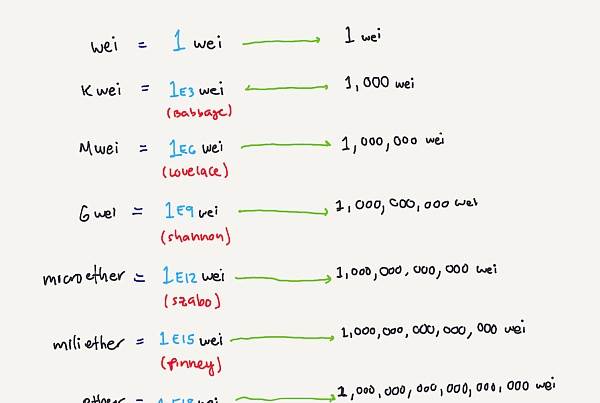 wei = 1 wei 1 wei
Kwei = 1E3 wei 1,000 wei
(Babbage)
Mwei = 1E6 wei 1,000,000 wei
(lovelace)
Gwei = 1E9 wei 1,000,000,000 wei
(shannon)
microether = 1E12 wei 1,000,000,000,000 wei
(szabo)
milliether = 1E15 wei 1,000,000,000,000,000 wei
(finney)
ether = 1E18 wei 1,000,000,000,000,000,000 wei